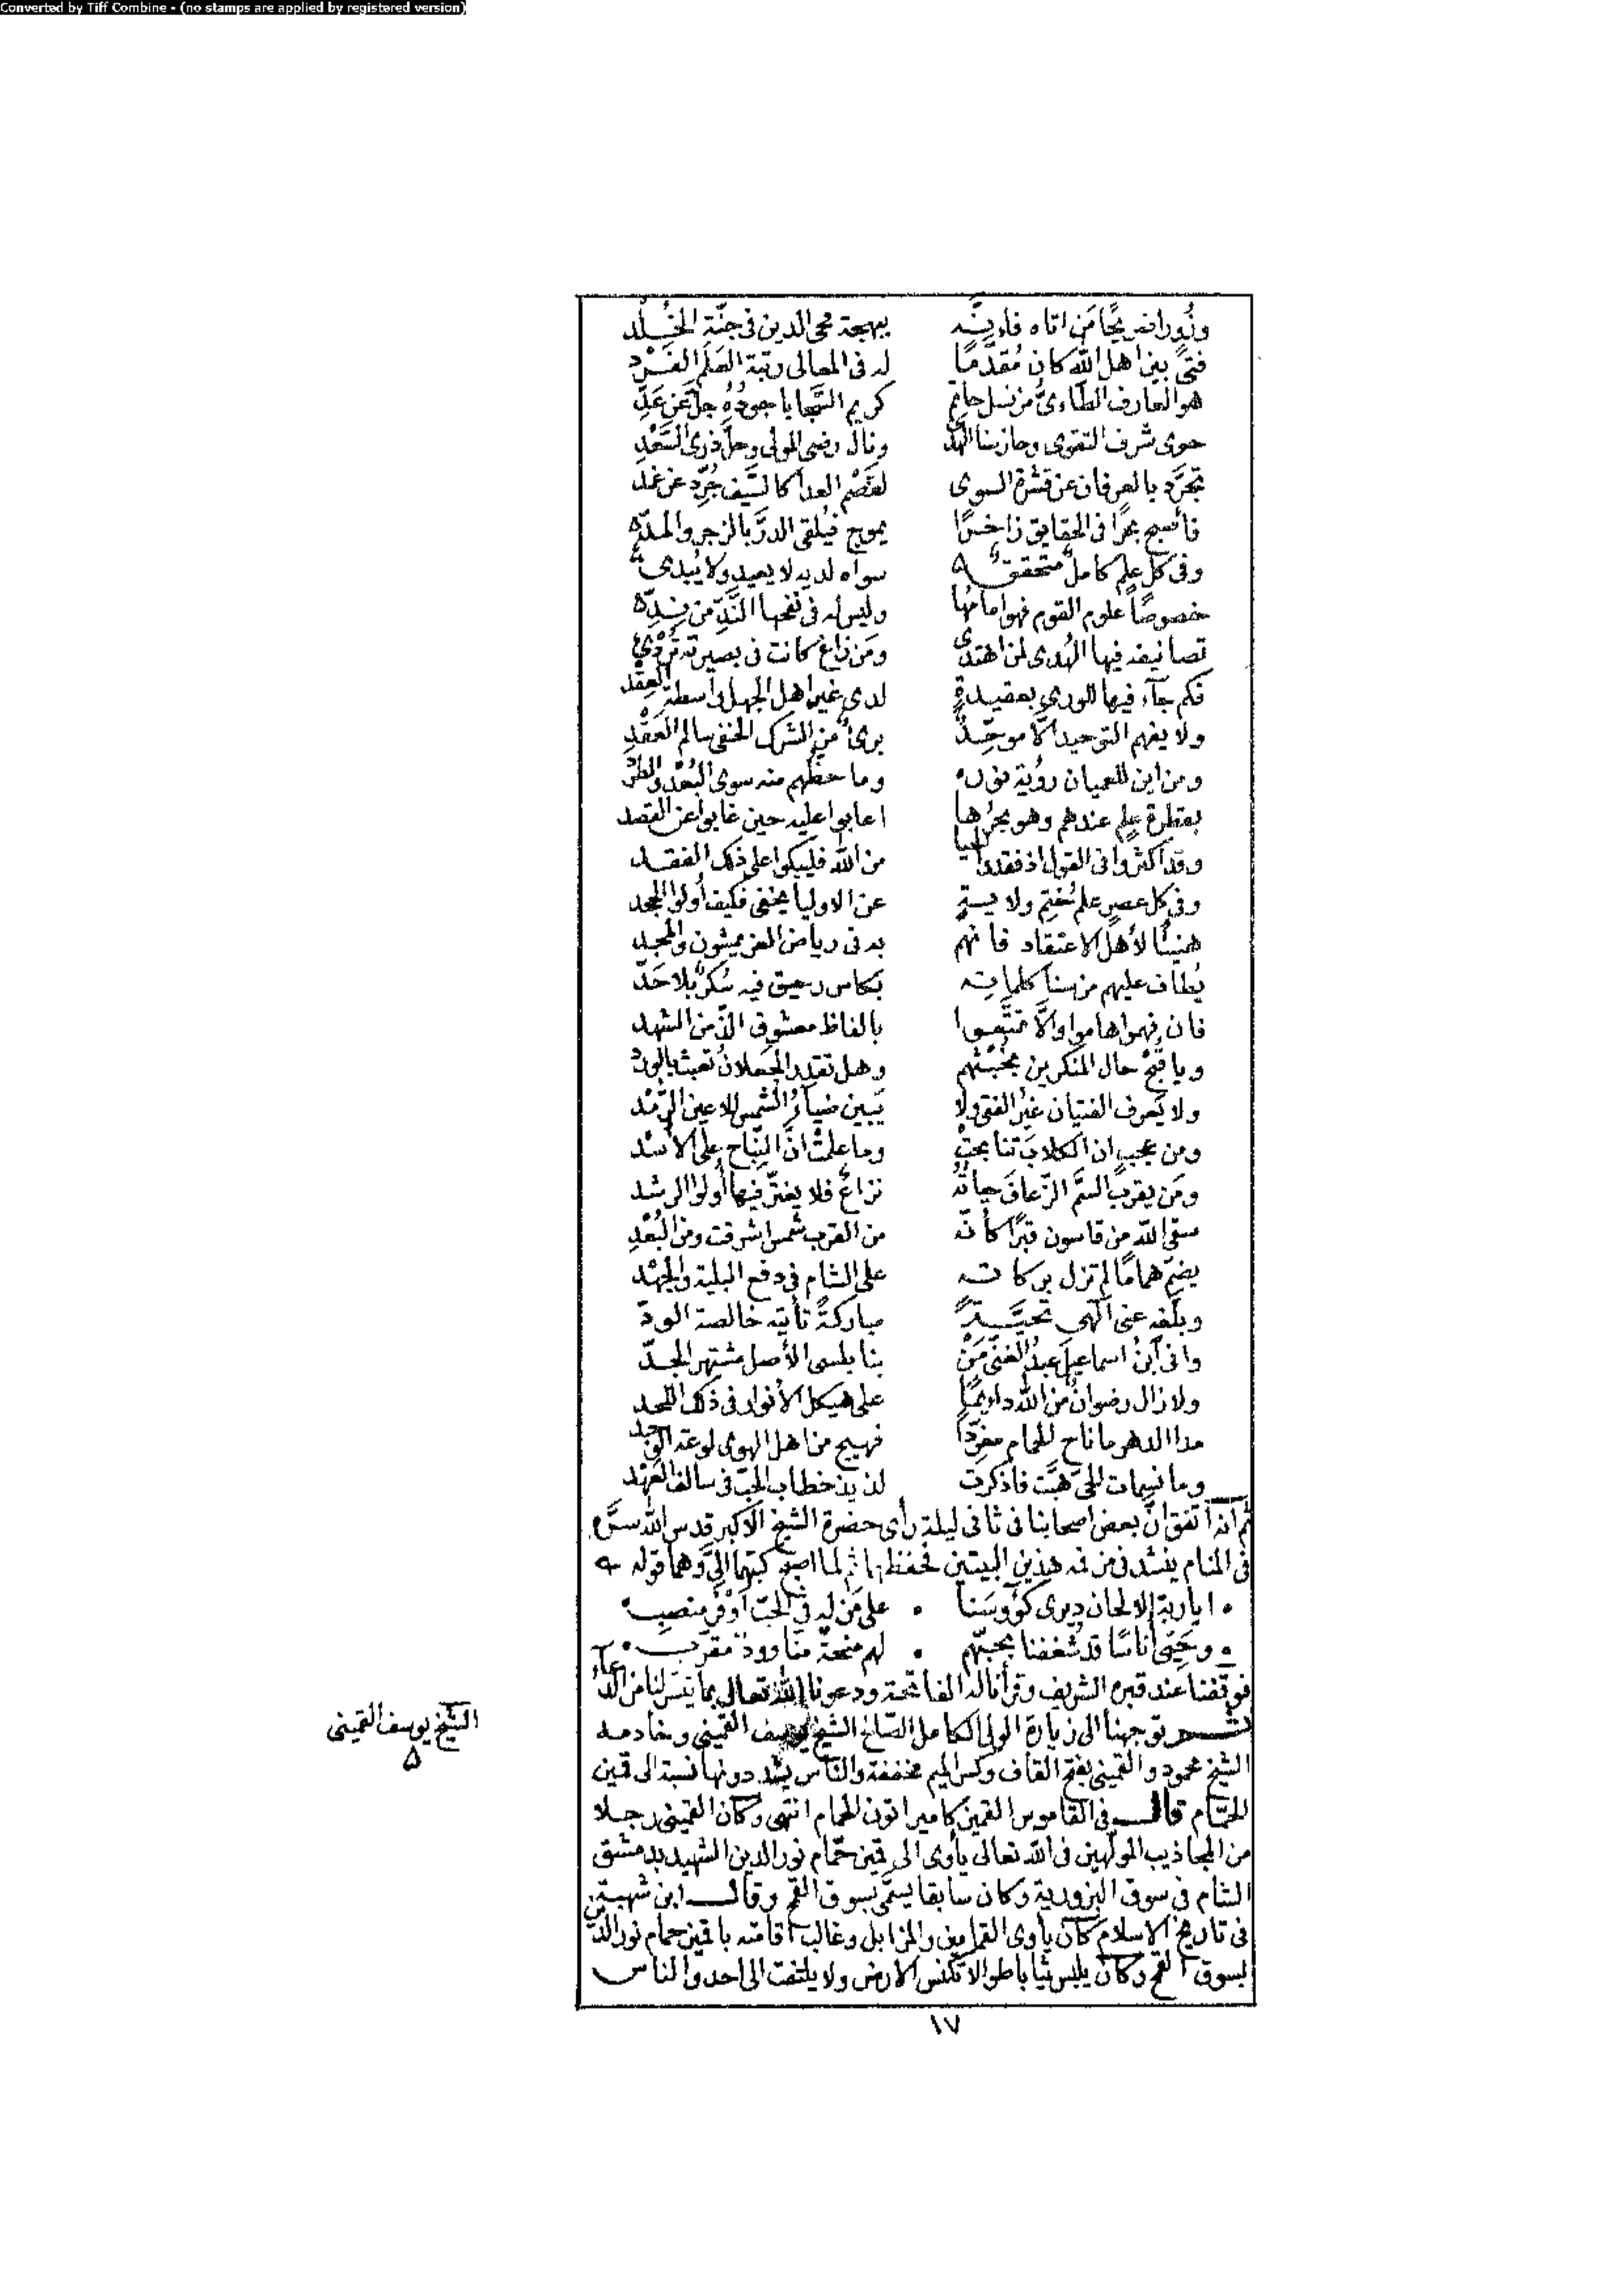 Converted by Tiff Combine - (no stamps are applied by registered version)
وزُر رافد يجًا مَن اتاه فاءنّه بهجة محى الدين فى جنّة الخُلد
فتىً بين اهل الله كان مُقدّمًا له فى المعالى رتبة العَلَم الفَرْد
هو العارف الطاءىّ من نسل حاتم كريم السَّجايا جودُهُ جلَّ عن عَدِّ
حوى شرف التقوى وحاز سنا الهدى ونال رضى المولى وحلَّ ذرى السَّعْدِ
تجرَّد بالعرفان عن قشرة السوى لقَصْم العدا كالسَّيف جُرِّد عن غمد
فأصبح بحرًا فى الحقايق زاخرًا يموج فيُلقى الدرَّ بالزجر والمدّ
وفى كل علم كامل متحقق سواه لديه لا يعيد ولا يُبدى
خصوصًا علوم القوم فهو امامُها وليس له فى نفحها النَّدِّ من نِدِّ
تصانيفه فيها الهُدى لمن اهتدى ومَن زاغ كانت فى بصيرته تُرْدى
فكم جآء فيها للورى بعقيدةٍ لدى غير اهل الجهل واسطة العِقْد
ولا يفهم التوحيد الّا موحِّدٌ برىءٌ من الشرك الخفى سالم العَقْدِ
ومن اين للعميان رؤية نوره وما حظّهم منه سوى البُعْد والطرْد
بقطرة علم عندهم وهو بحرُها اعابوا عليه حين غابوا عن القصد
وقد اكثروا فى القول اذ فقدوا الحيا من الله فليبكوا على ذلك الفقد
وفى كل عصرٍ علم ختم ولايةٍ عن الاوليا يخفى فكيف أولو الجحد
هنيئًا لأهل الاعتقاد فانهم به فى رياض العز يمشون والمجد
يُطاف عليهم من سنا كلماته بكاس رحيق فيه سُكرٌ بلا حَدّ
فان فهموا هاموا والّا تمتّعوا بالفاظ معشوق الذّ من الشهد
ويا قُبْحَ حال المنكرين بخُبْثهم وهل تقدر الجعلانُ تعبث بالورد
ولا يَعرف الفتيان غيرُ الفتى ولا يَبين ضياءُ الشمس للاعين الرُّمْد
ومن عجبٍ ان الكلابَ تنابحتْ وما علمتْ انَّ النّباح على الأسْد
ومَن يقرب السمَّ الزّعافَ حياتُه نزاعٌ فلا يغترّ فيها أولو الرشد
سقى الله من قاسون قبرًا كأنّه من القرب شمس اشرقت ومن البُعْدِ
يضمّ همامًا لم تزل بركاته على الشام فى دفع البلية والجَهْد
وبلّغه عنى الٓهى تحيّةً مباركةً تأتيه خالصة الودّ
وانى ابنُ اسماعيلَ عبدُ الغنى مَن بنابلسى الأصل مشتهر الجدّ
ولا زال رضوانٌ من الله دايمًا على هيكل الأنوار فى ذلك اللحد
مدا الدهر ما ناح الحمام مغرّدًا فهيج من اهل الهوى لوعة الوَجد
وما نسمات الحىّ هَبَّت فاذكرت لذيذ خطاب الحبّ فى سالف العَهْد
ثم انه اتفق انّ بعض اصحابنا فى ثانى ليلة رأى حضرة الشيخ الاكبر قدس الله سرَّه
فى المنام ينشد فى من فمه هذين البيتين فحفظها ثم لما اصبح كتبها الىَّ وهما قوله
ايا ربة الالحان ديرى كؤوسَنا على مَن له فى الحبّ اوْفَر منصبِ
وحيّى أناسًا قد شُغفنا بحبّهم لهم منحةٌ منا وودّ مقرّب
فوقفنا عند قبره الشريف وقرأنا له الفاتحة ودعونا الله تعالى بما تيسر لنا من الدعآء
ثـم توجهنا الى زيارة الولى الكامل الصّالح الشيخ يوسف القمينى وخادمه
الشيخ محمود والقمينى بفتح القاف وكسر الميم مخففة والناس يشددونها نسبة الى قمين
الحمّام قال فى القاموس القمين كامير اتون الحمام انتهى وكان القمينى رجلا
من المجاذيب المولّهين فى الله تعالى يأوى الى قمين حمّام نور الدين الشهيد بدمشق
الشام فى سوق البزورية وكان سابقا يسمّى بسوق القمح وقال ابن شهبة
فى تاريخ الاسلام كان يأوى القمامين والمزابل وغالب اقامته باقمين حمام نور الدين
بسوق القمح وكان يلبس ثيابا طوالا تكنس الارض ولا يلتفت الى احد والناس
الشيخ يوسف القمينى
٥
١٧